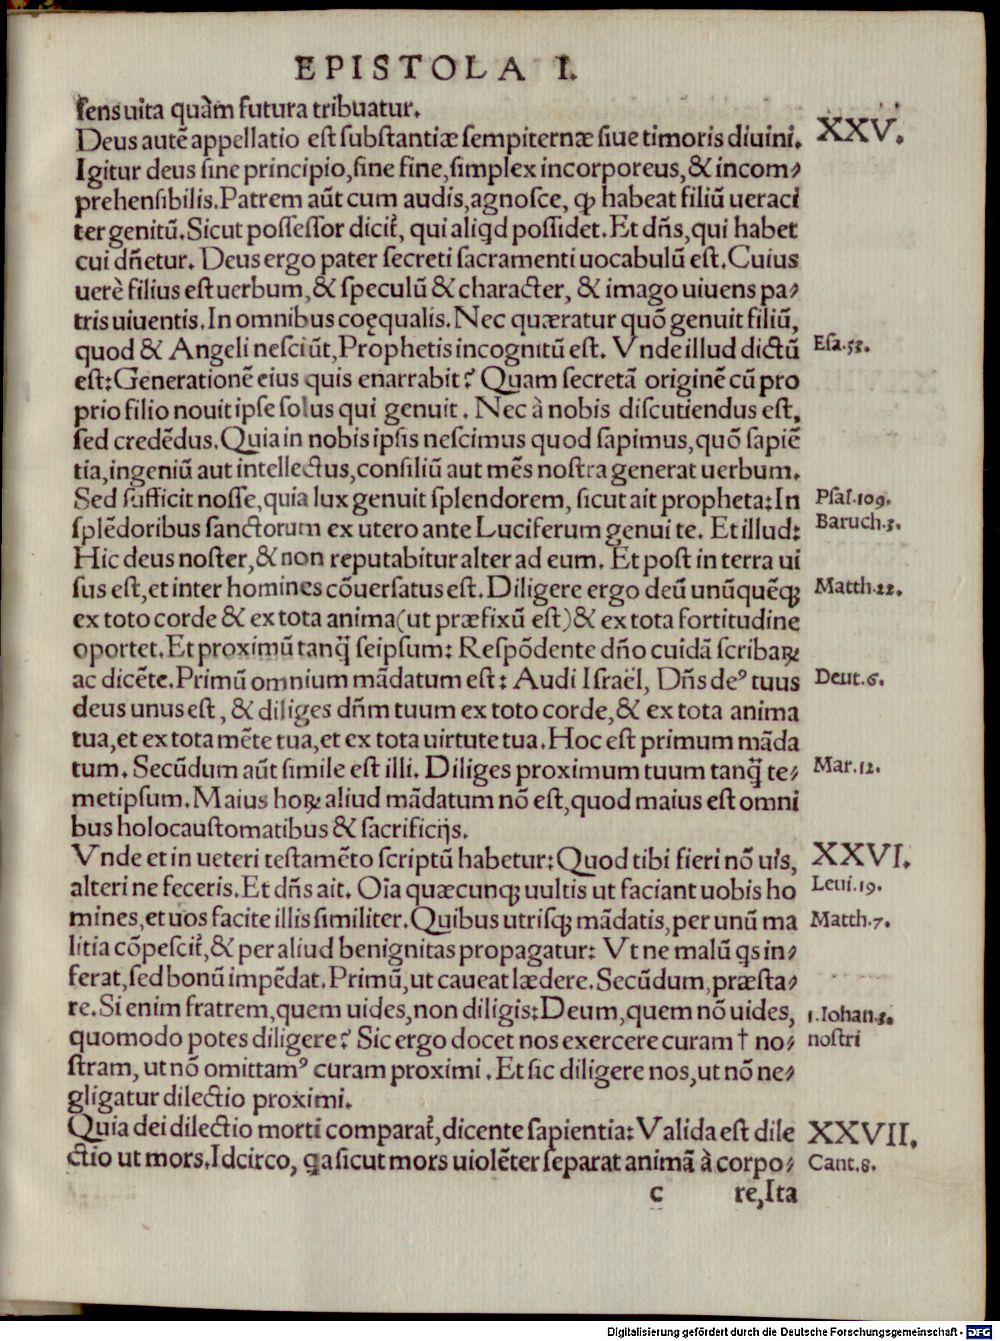 EPISTOLA I.
sens uita quàm futura tribuatur.
Deus autẽ appellatio est substantiæ sempiternæ siue timoris diuini.
XXV.
Igitur deus sine principio, sine fine, simplex incorporeus, & incom⸗
prehensibilis. Patrem aũt cum audis, agnosce, ꝙ habeat filiũ ueraci
ter genitũ. Sicut possessor dicit᷑, qui aliꝗd possidet. Et dñs, qui habet
cui dñetur. Deus ergo pater secreti sacramenti uocabulũ est. Cuius
uerè filius est uerbum, & speculũ & character, & imago uiuens pa⸗
tris uiuentis. In omnibus coęqualis. Nec quæratur quõ genuit filiũ,
quod & Angeli nesciũt, Prophetis incognitũ est. Vnde illud dictũ
Esa.53.
est: Generationẽ eius quis enarrabit? Quam secretã originẽ cũ pro
prio filio nouit ipse solus qui genuit. Nec à nobis discutiendus est,
sed credẽdus. Quia in nobis ipsis nescimus quod sapimus, quõ sapiẽ
tia, ingeniũ aut intellectus, consiliũ aut mẽs nostra generat uerbum.
Sed sufficit nosse, quia lux genuit splendorem, sicut ait propheta: In
Psal.109.
splẽdoribus sanctorum ex utero ante Luciferum genui te. Et illud:
Baruch.3.
Hic deus noster, & non reputabitur alter ad eum. Et post in terra ui
sus est, et inter homines cõuersatus est. Diligere ergo deũ unũquẽqꝫ
Matth.22.
ex toto corde & ex tota anima (ut præfixũ est) & ex tota fortitudine
oportet. Et proximũ tanꝗ̃ seipsum: Respõdente dño cuidã scribaꝝ
ac dicẽte. Primũ omnium mãdatum est: Audi Israël, Dñs deꝰ tuus
Deut.6.
deus unus est, & diliges dñm tuum ex toto corde, & ex tota anima
tua, et ex tota mẽte tua, et ex tota uirtute tua. Hoc est primum mãda
tum. Secũdum aũt simile est illi. Diliges proximum tuum tanꝗ̃ te⸗
Mar.12.
metipsum. Maius hoꝝ aliud mãdatum nõ est, quod maius est omni
bus holocaustomatibus & sacrificijs.
Vnde et in ueteri testamẽto scriptũ habetur: Quod tibi fieri nõ uis,
XXVI.
alteri ne feceris. Et dñs ait. Oĩa quæcunqꝫ uultis ut faciant uobis ho
Leui.19.
mines, et uos facite illis similiter. Quibus utrisqꝫ mãdatis, per unũ ma
Matth.7.
litia cõpescit᷑, & per aliud benignitas propagatur: Vt ne malũ ꝗs in⸗
ferat, sed bonũ impẽdat. Primũ, ut caueat lædere. Secũdum, præsta⸗
re. Si enim fratrem, quem uides, non diligis: Deum, quem nõ uides,
1.Iohan.3.
quomodo potes diligere? Sic ergo docet nos exercere curam † no⸗
nostri
stram, ut nõ omittamꝰ curam proximi. Et sic diligere nos, ut nõ ne⸗
gligatur dilectio proximi.
Quia dei dilectio morti comparat᷑, dicente sapientia: Valida est dile
XXVII.
ctio ut mors. Idcirco, ꝗa sicut mors uiolẽter separat animã à corpo⸗
Cant.8.
c re, Ita
Digitalisierung gefördert durch die Deutsche Forschungsgemeinschaft - DFG